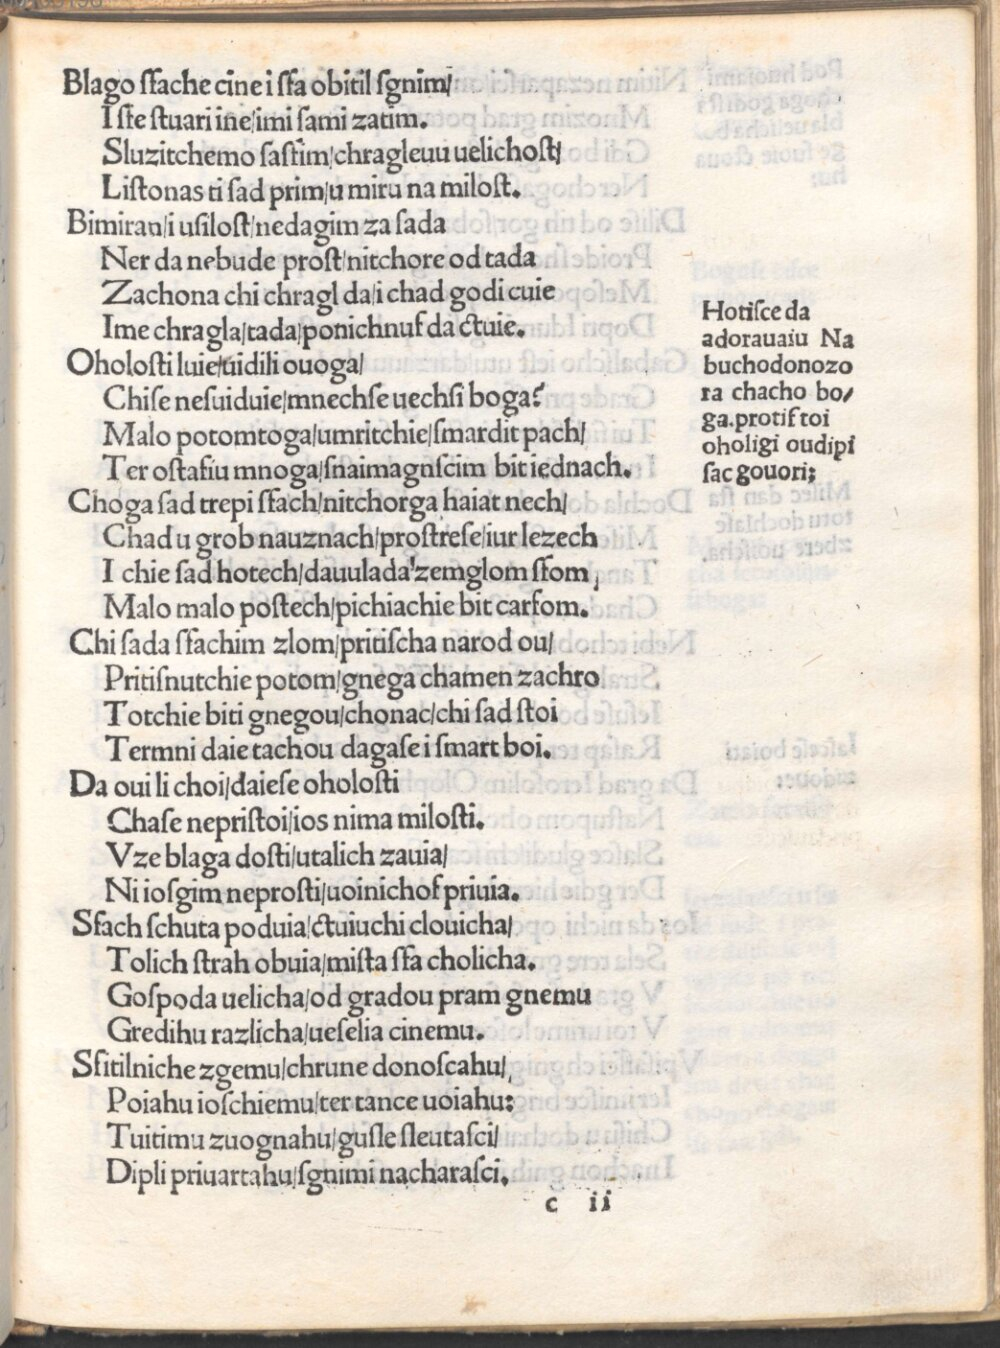 Blago sfache cine i sfa obitil sgnim/
I ste stuari ine/imi sami zatim.
Sluzitchemo sastim/chragleuu uelichost/
Listonas ti sad prim/u miru na milost.
Bimiran/i usilost/nedagim za sada
Ner da nebude prost/nitchore od tada
Zachona chi chragl da/i chad godi cuie
Ime chragla/tada/ponichnuf da ctuie.
Oholosti luie/uidili ouoga/
Chiſe neſuiduie/mnechſe uechſi boga?
Malo potomtoga/umritchie/ſmardit pach/
Ter oſtaſiu mnoga/ſnaimagnſcim bit iednach.
Choga ſad trepi ſfach/nitchorga haiat nech/
Chad u grob nauznach/proſtreſe/iur lezech
I chie ſad hotech/dauulada'zemglom ſfom
Malo malo poſtech/pichiachie bit carſom.
Chi ſada ſfachim zlom/pritiſcha narod ou/
Pritiſnutchie potom/gnega chamen zachro
Totchie biti gnegou/chonac/chi ſad ſtoi
Termni daie tachou dagaſe i ſmart boi.
Da oui li choi/daieſe oholoſti
Chaſe nepriſtoi/ios nima miloſti.
Vze blaga doſti/utalich zauia/
Ni ioſgim neproſti/uoinichof priuia.
Sfach ſchuta poduia/ctuiuchi clouicha/
Tolich ſtrah obuia/miſta ſfa cholicha.
Goſpoda uelicha/od gradou pram gnemu
Gredihu razlicha/ueſelia cinemu.
Sfitilniche zgemu/chrune donoſcahu/
Poiahu ioſchiemu/ter tance uoiahu:
Tuitimu zuognahu/guſle ſleutaſci/
Dipli priuartahu/ſgnimi nacharaſci.
c ii
Hotiſce da
adorauaiu Na
buchodonozo
ra chacho bo/
ga.protif toi
oholigi oudipi
ſac gouori;